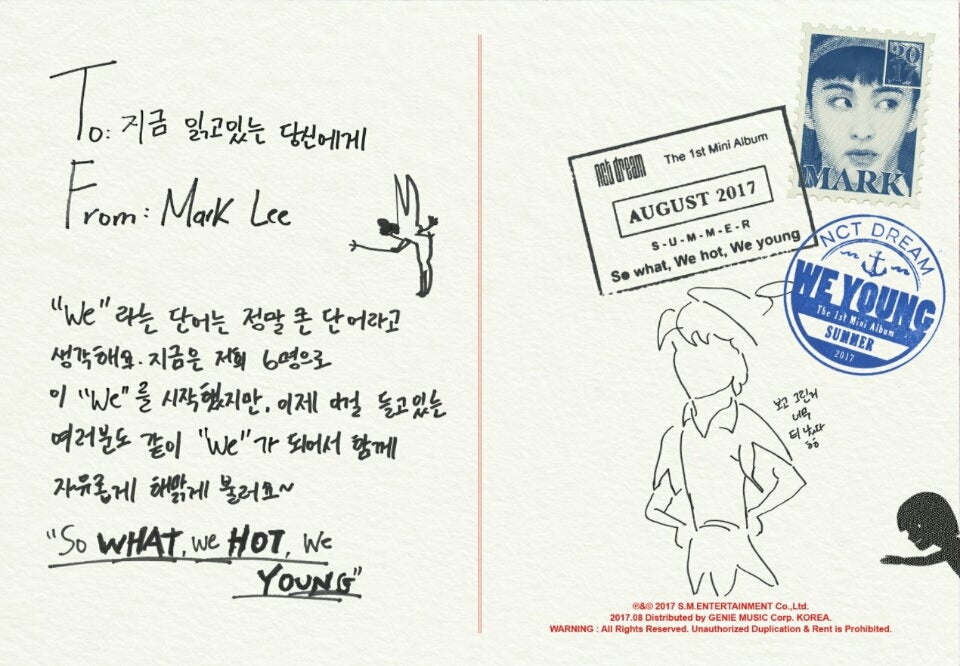 To: 지금 읽고있는 당신에게
From: Mark Lee
"We" 라는 단어는 정말 큰 단어라고
생각해요. 지금은 저희 6명으로
이 "We"를 시작했지만, 이제 이걸 듣고있는
여러분도 같이 "We"가 되어서 함께
자유롭게 해맑게 불러요~
"So WHAT, we HOT, we
YOUNG"
2017
MARK
nct dream The 1st Mini Album
AUGUST 2017
S-U-M-M-E-R
So what, We hot, We young
NCT DREAM
WE YOUNG
The 1st Mini Album
SUMMER
2017
보고 그린거
너무
티 났다
ㅎㅎ
℗&© 2017 S.M.ENTERTAINMENT Co.,Ltd.
2017.08 Distributed by GENIE MUSIC Corp. KOREA.
WARNING : All Rights Reserved. Unauthorized Duplication & Rent is Prohibited.